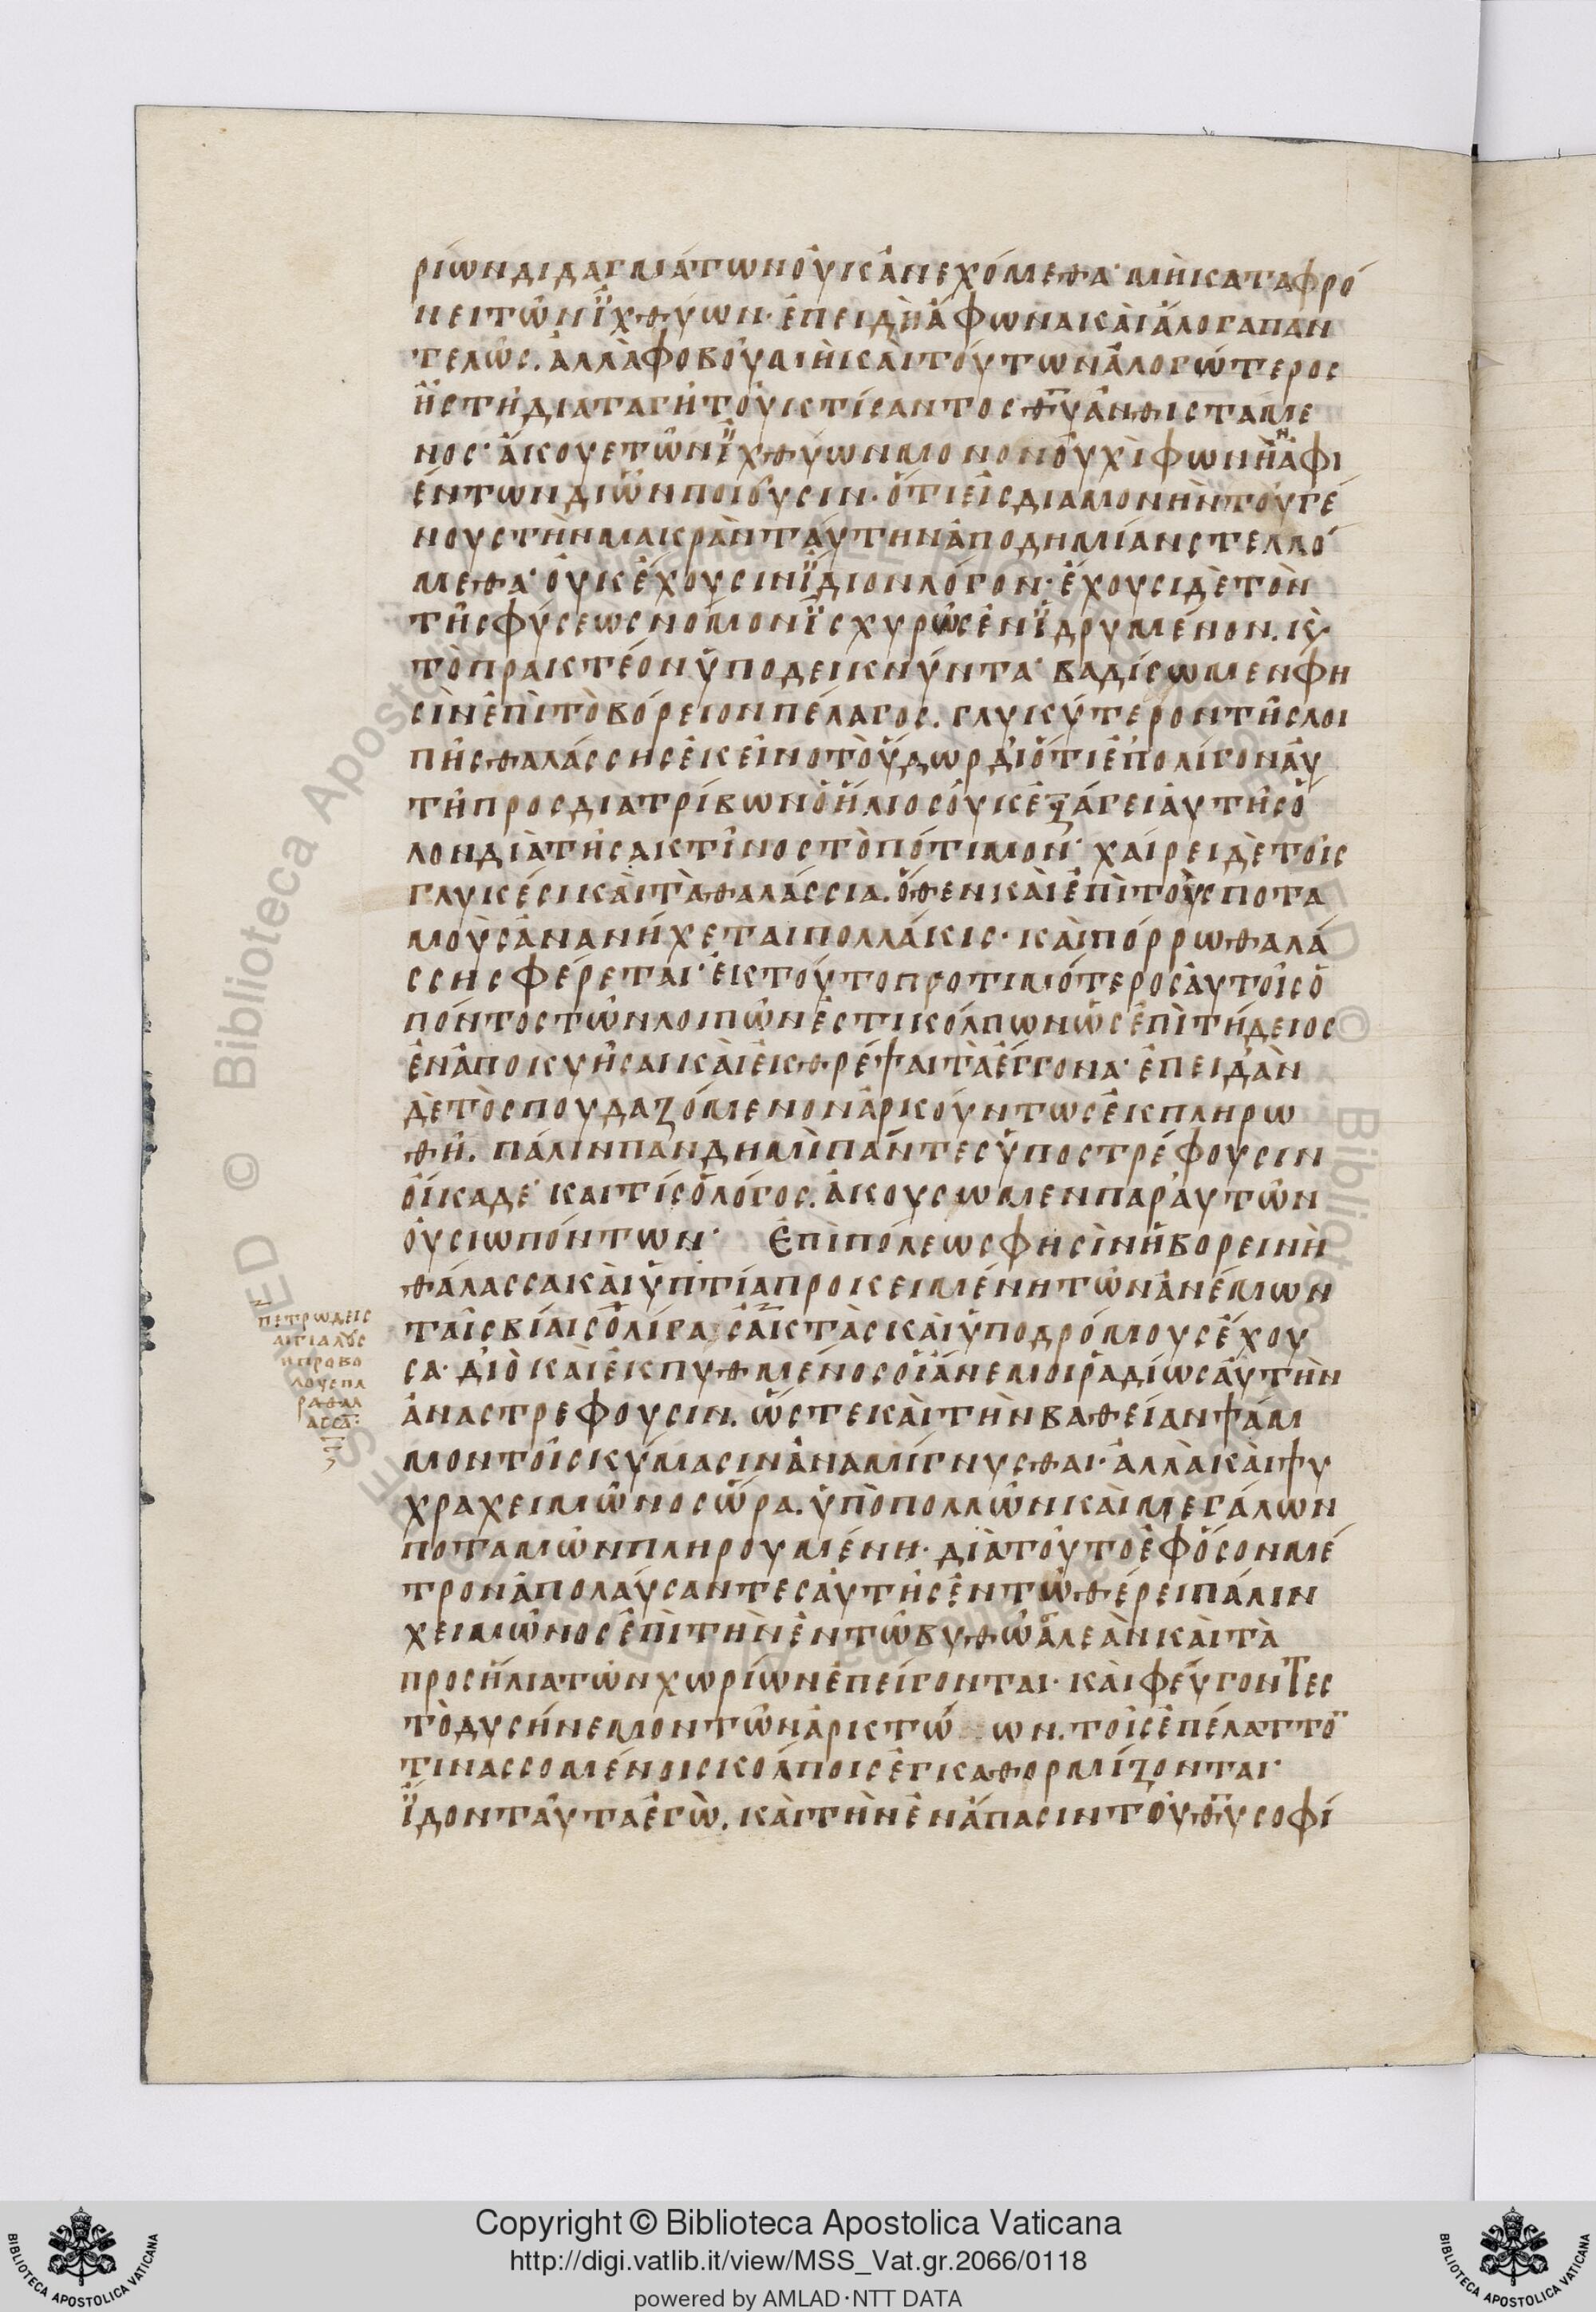 ρίων διδαγμάτων οὐκ ἀνεχόμεθα· μὴ καταφρό
νει τῶν ἰχθύων· ἐπειδὴ ἄφωνα καὶ ἄλογα παν
τελῶς. ἀλλὰ φοβοῦ μὴ καὶ τούτων ἀλογώτερος
ᾖς τῇ διαταγῇ τοῦ κτίσαντος θυ ἀνθιστάμε
νος· ἄκουε τῶν ἰχθύων μονονουχὶ φωνὴν ἀφι
έντων δι ὧν ποιοῦσιν· ὅτι εἰς διαμονὴν τοῦ γέ
νους τὴν μακρὰν ταύτην ἀποδημίαν στελλό
μεθα· οὐκ ἔχουσιν ἴδιον λόγον· ἔχουσι δὲ τὸν
τῆς φύσεως νόμον ἰσχυρῶς ἐνϊδρυμένον. κ̀
τὸ πρακτέον ὑποδεικνύντα· βαδίσωμεν φη
σὶν ἐπὶ τὸ βόρειον πέλαγος. γλυκύτερον τῆς λοι
πῆς θαλάσσης ἐκεῖνο τὸ ὕδωρ διότι ἐπ ολίγον αὐ
τῇ προσδιατρίβων ὁ ἥλιος οὐκ ἐξάγει αὐτῆς ὅ
λον διὰ τῆς ακτῖνος τὸ πότιμον· χαίρει δὲ τοῖς
γλυκέσι καὶ τὰ θαλάσσια. ὅθεν καὶ ἐπὶ τοὺς ποτα
μοὺς ἀνανήχεται πολλάκις· καὶ πόρρω θαλά
σσης φέρεται· ἐκ τούτο προτιμότερος αὐτοῖς ὁ
πόντος τῶν λοιπῶν ἐστι κόλπων ὡς ἐπιτήδειος
ἐναποκυῆσαι καὶ ἐκθρέψαι τὰ ἔγγονα· ἐπειδὰν
δὲ τὸ σπουδαζόμενον ἀρκούντως ἐκπληρω
θῇ. πάλιν πανδημὶ πάντες ὑποστρέφουσιν
οἴκαδε· καὶ τίς ὁ λόγος. ἀκούσωμεν παρ αὐτῶν
οὐ σιωπόντων· Ἐπιπόλεως φησὶν ἡ βορεινὴ
θάλασσα καὶ ὑπτία προκειμένη τῶν ἀνέμων
ταῖς βίαις ὀλίγας ἀκτὰς καὶ ὑποδρόμους ἔχου
σα· διὸ καὶ ἐκ πυθμένος οἱ ἄνεμοι ῥαδίως αὐτὴν
ἀναστρέφουσιν. ὥστε καὶ τὴν βαθείαν ψάμ
μον τοῖς κύμασιν ἀναμίγνυσθαι· ἀλλὰ καὶ ψυ
χρα χειμῶνος ὥρα. ὑπὸ πολλῶν καὶ μεγάλων
ποταμῶν πληρουμένη· διὰ τοῦτο ἐφ ὅσον μέ
τρον ἀπολαύσαντες αὐτῆς ἐν τῷ θέρει πάλιν
χειμῶνος ἐπὶ τὴν ἐν τῷ βυθῷ ἀλεὰν καὶ τὰ
προσήλια τῶν χωρίων ἐπείγονται· καὶ φεύγοντες
τὸ δυσήνεμον τῶν ἀρκτώων. τοῖς ἐπέλαττο
τινασσομένοις κόλποις ἐγκαθορμίζονται·
ἴδον ταῦτα ἐγὼ. καὶ τὴν ἐν ἅπασιν τοῦ θυ σοφί
πετρώδεις
αιγιαλοὺς
η προβο
λους πα
ρα θαλ
ασσαν
Copyright © Biblioteca Apostolica Vaticana
http://digi.vatlib.it/view/MSS_Vat.gr.2066/0118
powered by AMLAD·NTT DATA
BIBLIOTECA APOSTOLICA VATICANA
BIBLIOTECA APOSTOLICA VATICANA